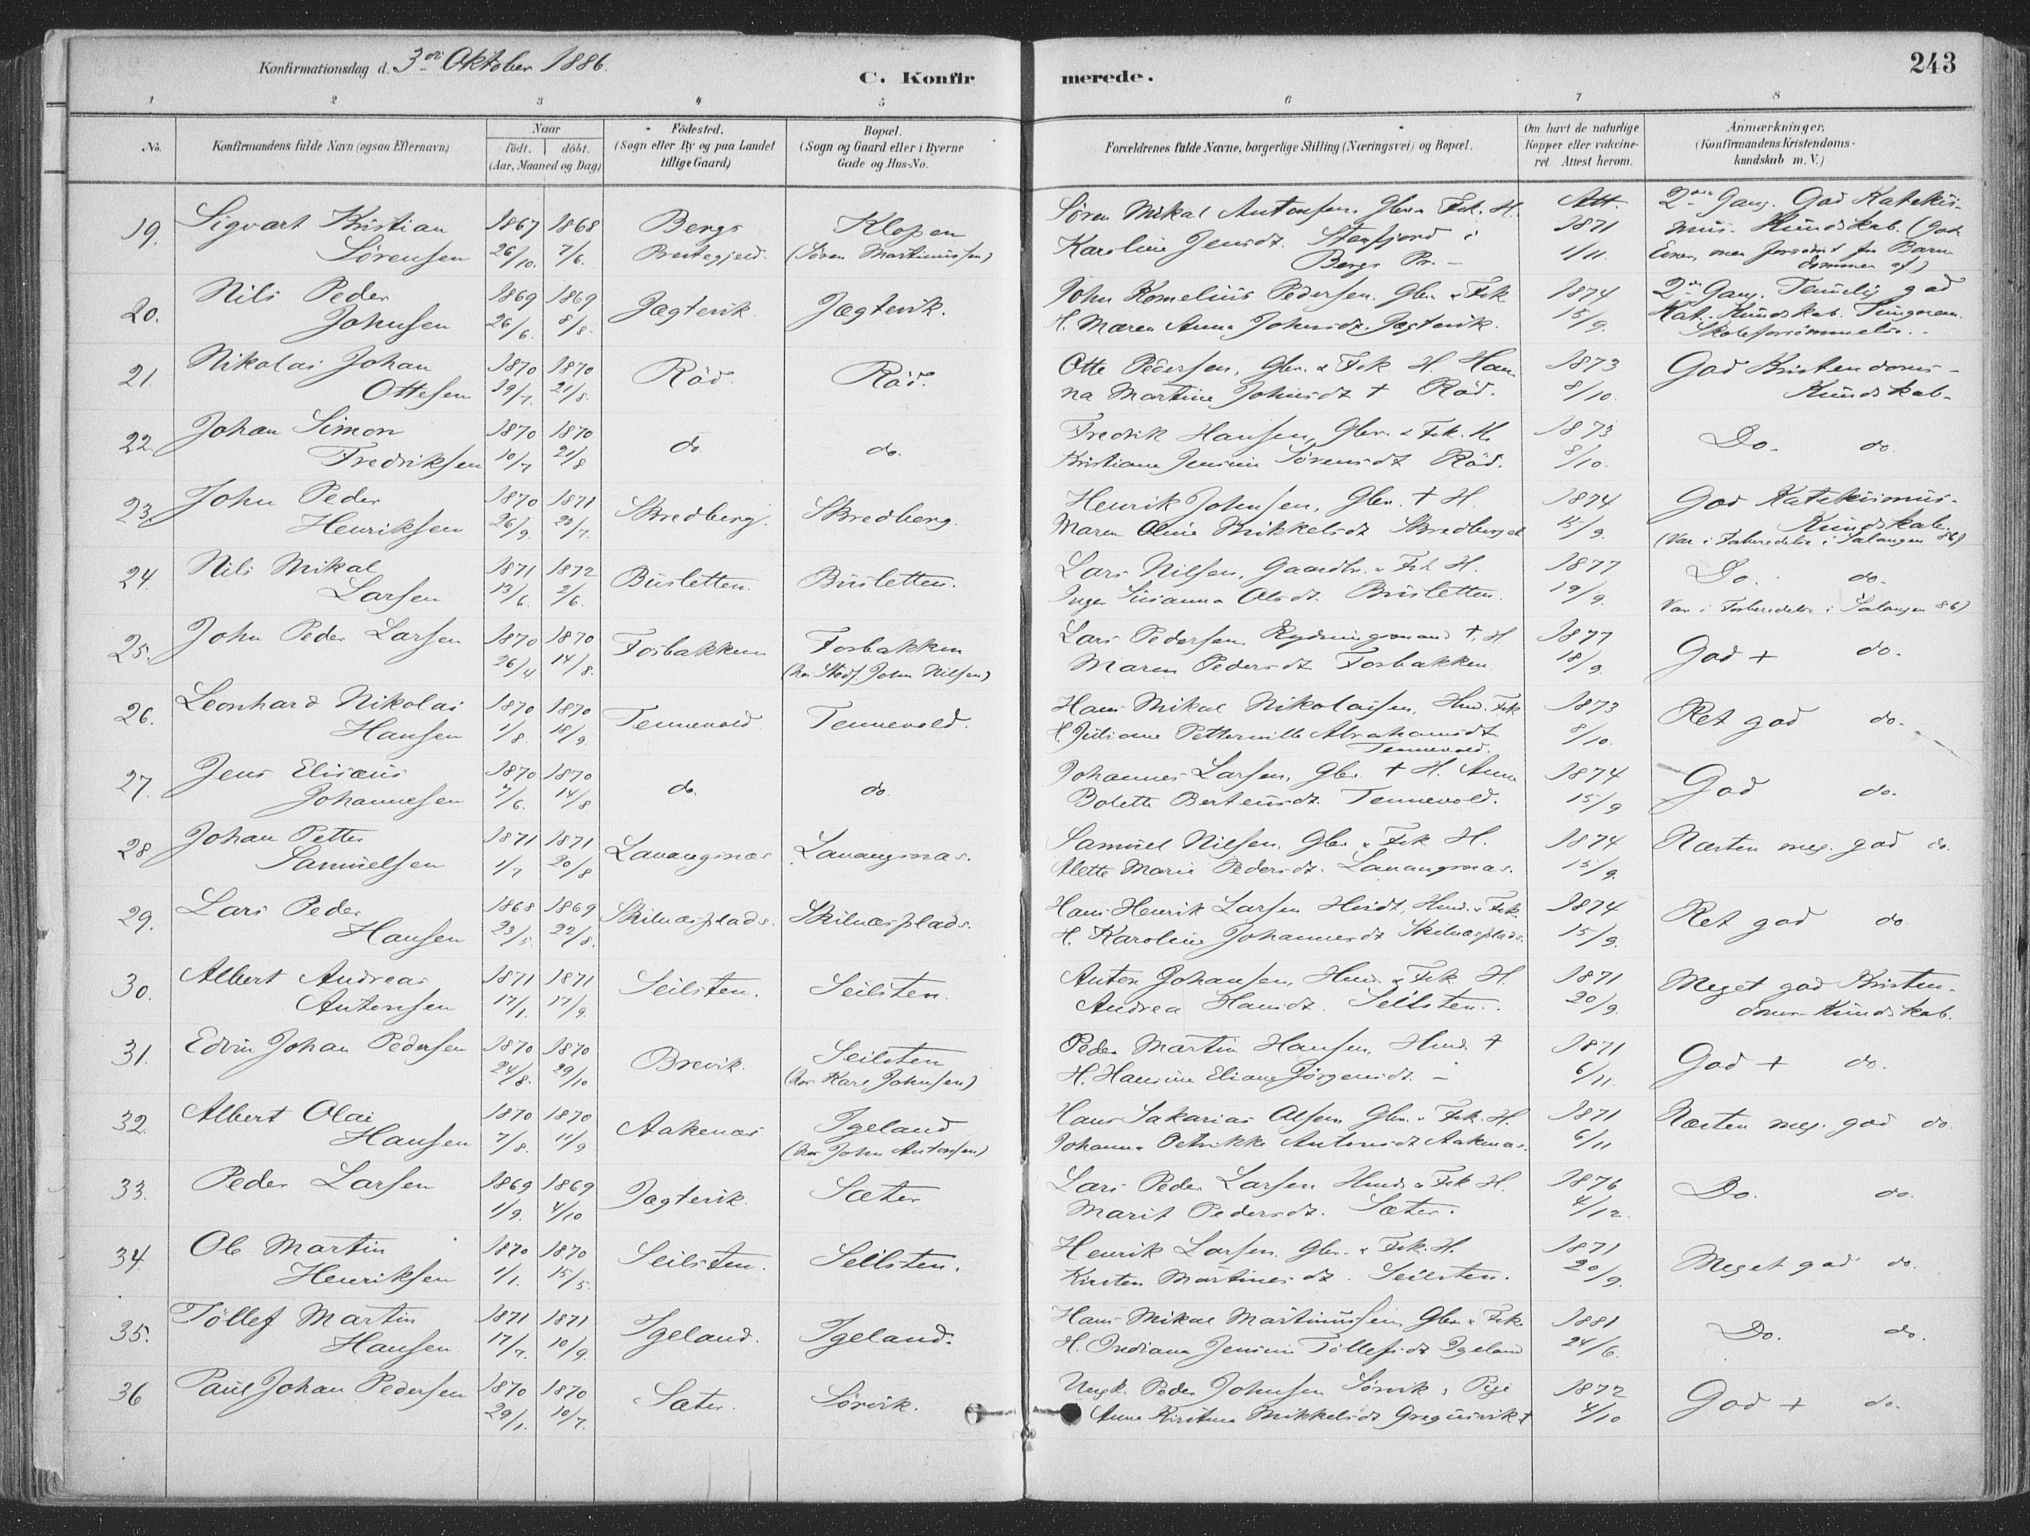 Konfirmationsdag d. 3die Oktober 1886.
C. Konfirmerede.
243
1 2 3 4 5 6 7 8
No.
Konfirmandens fulde Navn (ogsaa Efternavn)
Naar
født. døbt.
(Aar, Maaned og Dag)
Fødested.
(Sogn eller By og paa Landet
tillige Gaard)
Bopæl.
(Sogn og Gaard eller i Byerne
Gade og Hus-No.
Forældrenes fulde Navne, borgerlige Stilling (Næringsvei) og Bopæl.
Om havt de naturlige
Kopper eller vakcine-
ret Attest herom.
Anmærkninger.
(Konfirmandens Kristendoms-
kundskab m. V.)
19. Sigvart Kristian 1867 1868 Bergs Klopen Søren Mikal Antonsen, Gbr. Fsk. H. Att. 2den Gang. God Katekis-
Sørensen 26/10. 7/6. Præstegjeld. (Søren Martinussen) Karoline Jensdt. Steffjord i 1871 mus. Kundskab. (God
Bergs Pr. – 1/11. Evner, men forsømt fra Barn-
dommen af)
20. Nils Peder 1869 1869 Jægtevik Jægtevik. John Kornelius Pedersen. Gbr. & Fsk 1874 2den Gang. Temelig god
Johnsen 26/6. 8/8. H. Maren Anna Johnsdt. Jægtevik. 15/9. Kat. Kundskab.
Skoleforsømmelse.
21. Nikolai Johan 1870 1870 Rød. Rød. Otte Pedersen, Gbr. & Fsk H. Han- 1873 God Kristendoms-
Ottesen 19/7. 21/8. na Martine Johnsdt † Rød. 8/10. Kundskab.
22. Johan Simon 1870 1870 do. do. Fredrik Hansen, Gbr. & Fsk. H. 1873 Do. do
Fredriksen 10/7 21/8 Kristiane Jensine Sørensdt Rød. 8/10.
23. John Peder 1870 1871 Skredberg. Skredberg. Henrik Johnsen, Gbr. † H. 1874 God Katekismus-
Henriksen 26/9. 23/7. Maren Oline Mikkelsdt Skredberg 15/9. Kundskab.
(Var i Forberedelse i Salangen 86)
24. Nils Mikal 1871 1872 Busletten. Busletten. Lars Nilsen, Gaardbr. & Fsk H. 1877 Do. do.
Larsen 13/6. 2/6. Inger Susanna Olsdt. Busletten. 19/9. Var i Forberedelse i Salangen 86)
25. John Peder Larsen 1870 1870 Fosbakken Fosbakken Lars Pedersen Rydningsmand †. H 1877 God + do.
26/4 14/8. (hos Stedf. John Nilsen) Maren Pedersdt Fosbakken. 18/9.
26. Leonhard Nikolai 1870 1870 Tennevold Tennevold. Hans Mikal Nikolaisen, Hmd. Fsk 1873 Ret god do.
Hansen 1/8. 18/9. H. Juliane Petternille Abrahamsdt 8/10.
Tennevold.
27. Jens Elisæus 1870 1870 do. do. Johannes Larsen, Gbr † H. Anne 1874 God do.
Johannesen 7/6. 14/8 Bolette Berteusdt. Tennevold. 15/9
28. Johan Petter 1871 1871 Lavangsnæs Lavangsnæs. Samuel Nilsen, Gbr. & Fsk H. 1874 Næsten meg. god do.
Samuelsen 1/7 20/8 Alette Marie Pedersdt. Lavangsnæs. 15/9.
29. Lars Peder 1868 1869 Skilnæsplads. Skilnæsplads. Hans Henrik Larsen Heidt, Hmd. & Fsk. 1874 Ret god do
Hansen 23/5. 22/8. H. Karoline Johannesdt Skilnæsplads. 15/9.
30. Albert Andreas 1871 1871 Seilsten. Seilsten. Anton Johansen, Hmd. & Fsk H. 1871 Meget god Kristen-
Antonsen 17/1. 17/9. Andrea Hansdt. Seilsten. 20/9. doms Kundskab.
31. Edvin Johan Pedersen 1870 1870 Brevik. Seilsten Peder Martin Hansen, Hmd. † 1871 God + do.
24/8. 29/10 (hos Karl Johnsen) H. Hansine Eliane Jørgensdt. – 6/11.
32. Albert Olai 1870 1870 Aakenæs Igeland Hans Sakarias Olsen, Gbr. & Fsk. H. 1871 Næsten meg. god do.
Hansen 7/8. 11/9 (hos John Antonsen) Johanna Petrikke Antonsdt Aakenæs. 6/11
33. Peder Larsen 1869 1869 Jægtevik. Sæter Lars Peder Larsen Hmd. & Fsk H. 1876 Do. do.
1/9. 4/10 Marit Pedersdt. Sæter. 4/12.
34. Ole Martin 1870 1870 Seilsten. Seilsten. Henrik Larsen. Gbr. & Fsk. H. 1871 Meget god do.
Henriksen 1/1. 15/5. Kirsten Martinesdt. Seilsten. 20/9.
35. Tøllef Martin 1871 1871 Igeland. Igeland. Hans Mikal Martinussen Gbr. & Fsk. 1881 Do. do.
Hansen 17/7. 10/9. H. Indiana Jensine Tøllefsdt Igeland 24/6.
36 Paul Johan Pedersen 1870 1870 Sæter. Sørvik. Ungk. Peder Johnsen Sørvik, Pige 1872 God + do.
29/1. 10/7. Anne Kirstine Mikkelsdt Gregusvik † 4/10